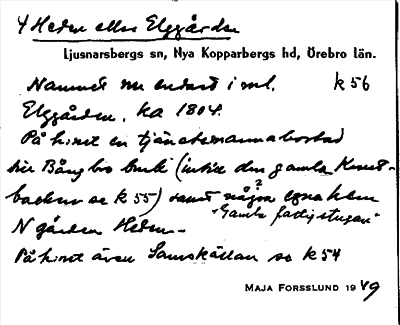 4 Heden eller Elggården
Ljusnarsbergs sn, Nya Kopparbergs hd, Örebro län.
Namnet nu endast i ml. k 56
Elggården, ka 1804.
På h:net en tjänstemannabostad
här Bångbro bruk (intill den gamla
backen se k 55) samt några? egnahem
"Gamla fattigstugan"
N gården Heden.
På h:net även Samskällan se k 54
MAJA FORSSLUND 1949